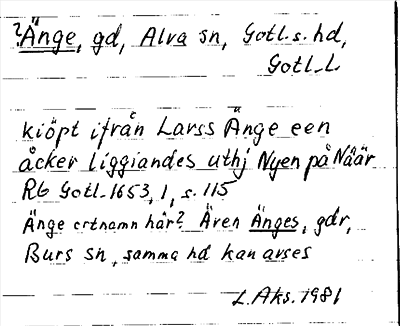 ?Änge, gd, Alva sn, Gotl. s. hd,
Gotl. L
kiöpt ifrån Larss Änge een
åcker liggiandes uthj Nyen på Nåär
RG Gotl. 1653, 1, s. 115
Änge ortnamn här? Även Änges, gdr,
Burs sn, samma hd kan avses
L. Aks. 1981